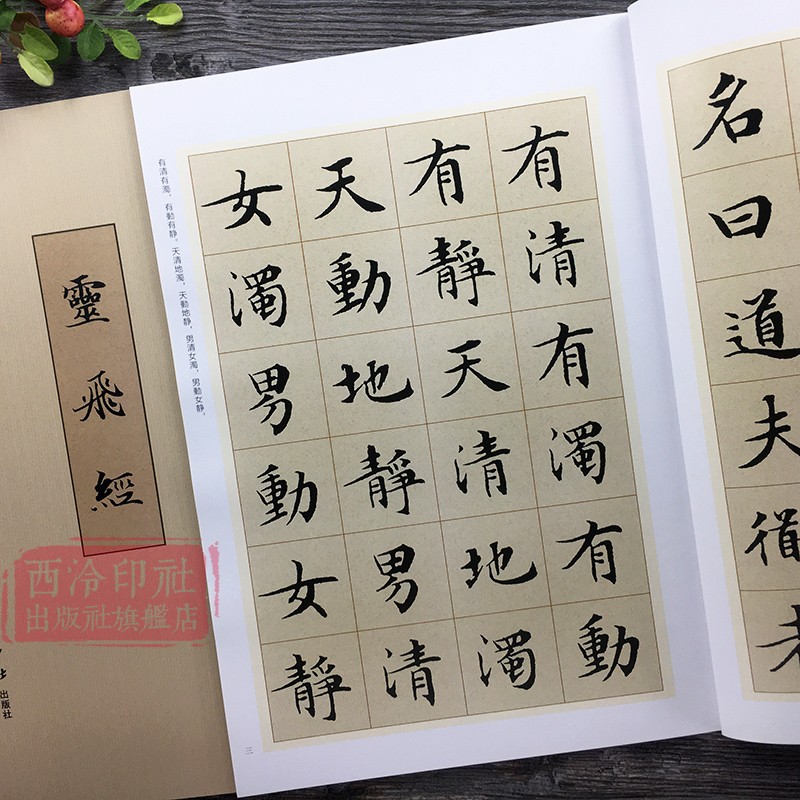 名曰道夫
有清有濁有動
有靜天清地濁
天動地靜男清
女濁男動女靜
有清有濁，有動有静。天清地濁，天動地静，男清女濁，男動女静，
三
靈飛經
西泠印社
出版社旗艦店
出版社